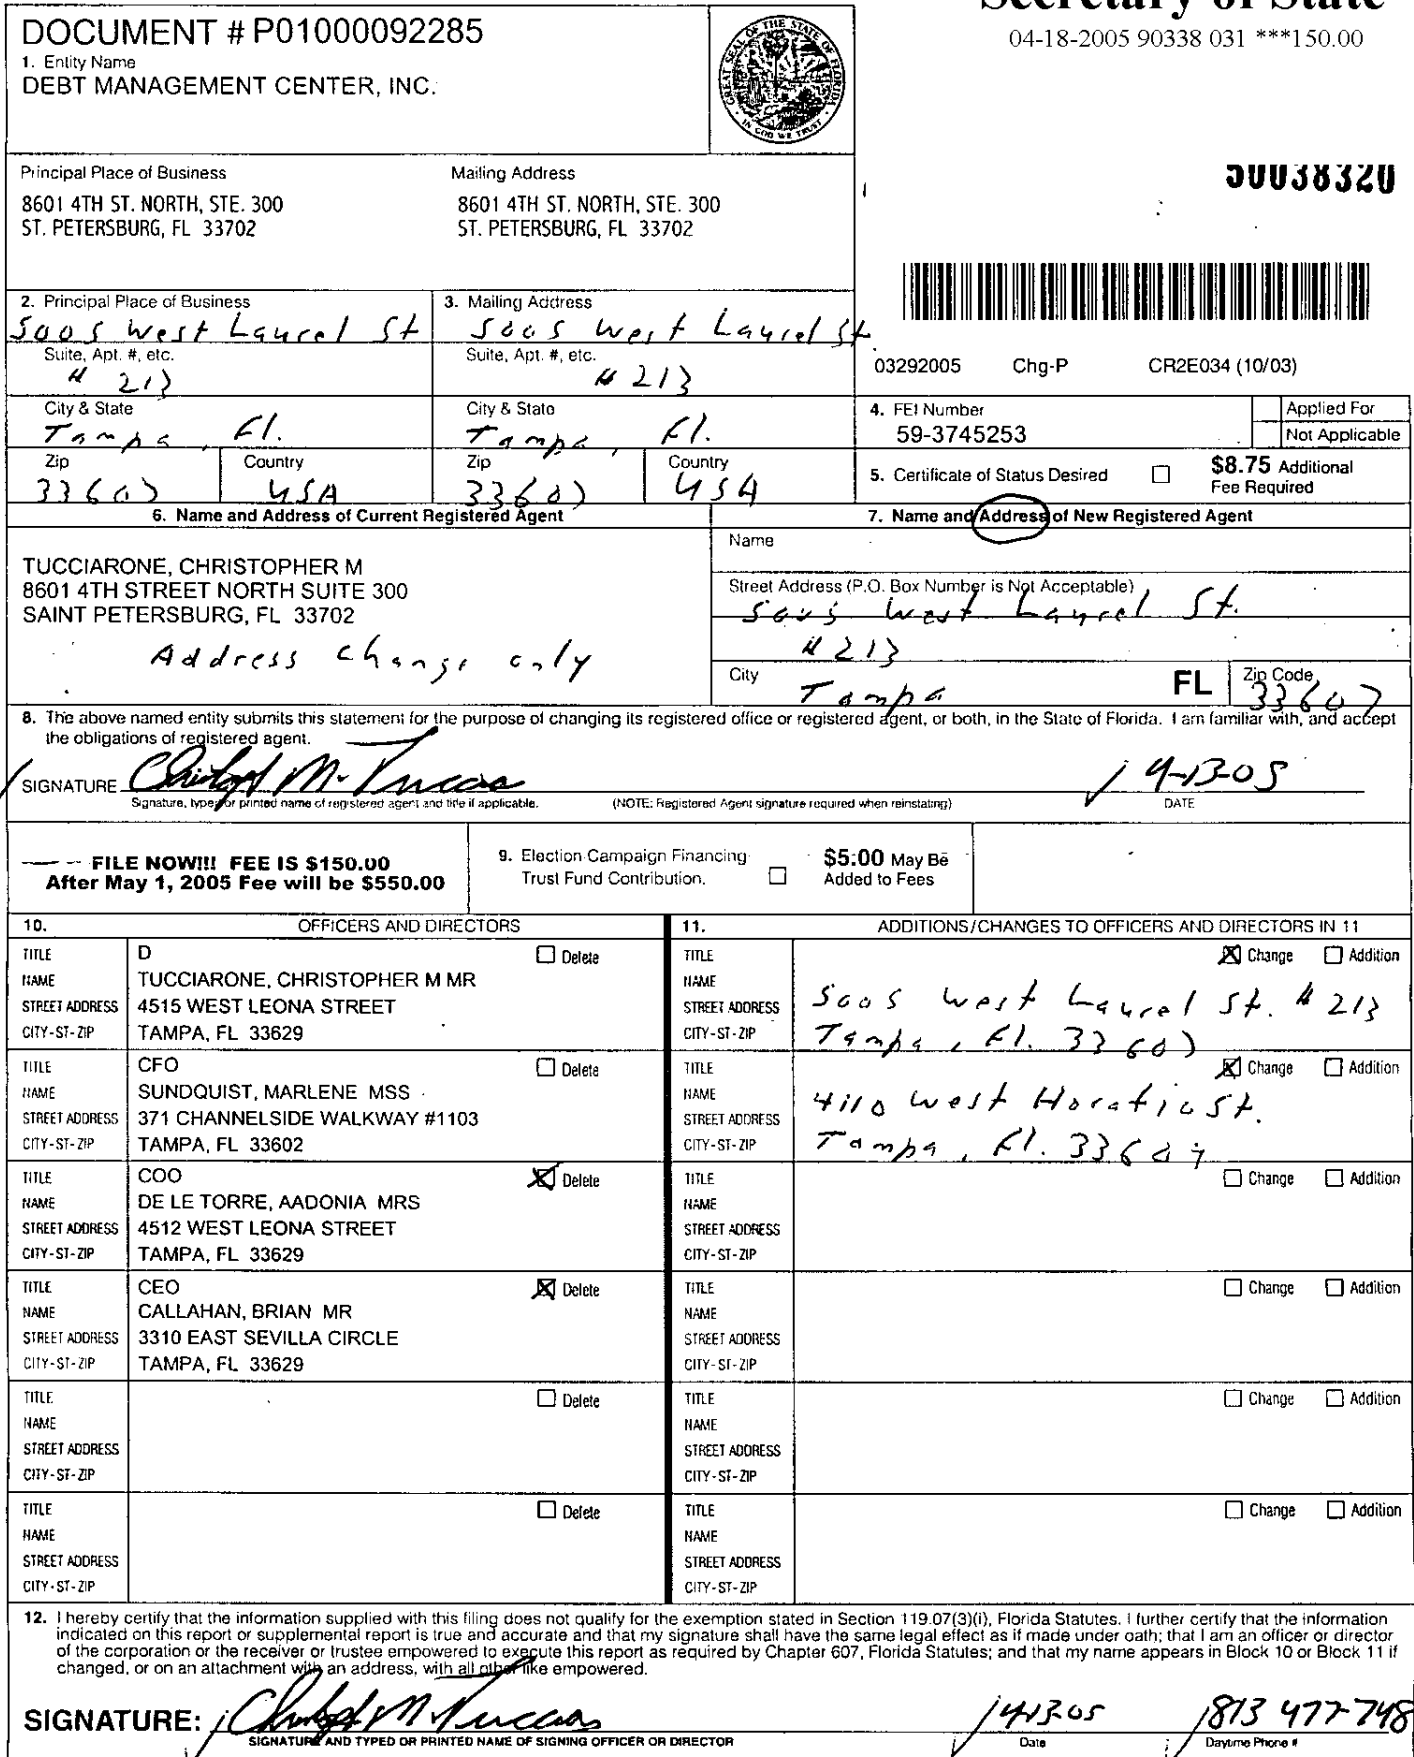 Secretary of State
04-18-2005 90338 031 ***150.00
DOCUMENT # P01000092285
1. Entity Name
DEBT MANAGEMENT CENTER, INC.
GREAT SEAL OF THE STATE OF FLORIDA
IN GOD WE TRUST
50038320
Principal Place of Business
8601 4TH ST. NORTH, STE. 300
ST. PETERSBURG, FL 33702
Mailing Address
8601 4TH ST. NORTH, STE. 300
ST. PETERSBURG, FL 33702
2. Principal Place of Business
5005 West Laurel St
Suite, Apt. #, etc.
# 213
City & State
Tampa, Fl.
Zip
33607
Country
USA
3. Mailing Address
5005 West Laurel St
Suite, Apt. #, etc.
# 213
City & State
Tampa, Fl.
Zip
33607
Country
USA
03292005 Chg-P CR2E034 (10/03)
4. FEI Number
59-3745253
Applied For
Not Applicable
5. Certificate of Status Desired
$8.75 Additional
Fee Required
6. Name and Address of Current Registered Agent
TUCCIARONE, CHRISTOPHER M
8601 4TH STREET NORTH SUITE 300
SAINT PETERSBURG, FL 33702
Address change only
7. Name and Address of New Registered Agent
Name
Street Address (P.O. Box Number is Not Acceptable)
5005 West Laurel St.
# 213
City
Tampa
FL
Zip Code
33607
8. The above named entity submits this statement for the purpose of changing its registered office or registered agent, or both, in the State of Florida. I am familiar with, and accept
the obligations of registered agent.
SIGNATURE
4-13-05
Signature, typed or printed name of registered agent and title if applicable.
(NOTE: Registered Agent signature required when reinstating)
DATE
FILE NOW!!! FEE IS $150.00
After May 1, 2005 Fee will be $550.00
9. Election Campaign Financing
Trust Fund Contribution.
$5.00 May Be
Added to Fees
10. OFFICERS AND DIRECTORS
TITLE D Delete
NAME TUCCIARONE, CHRISTOPHER M MR
STREET ADDRESS 4515 WEST LEONA STREET
CITY-ST-ZIP TAMPA, FL 33629
TITLE CFO Delete
NAME SUNDQUIST, MARLENE MSS
STREET ADDRESS 371 CHANNELSIDE WALKWAY #1103
CITY-ST-ZIP TAMPA, FL 33602
TITLE COO Delete
NAME DE LE TORRE, AADONIA MRS
STREET ADDRESS 4512 WEST LEONA STREET
CITY-ST-ZIP TAMPA, FL 33629
TITLE CEO Delete
NAME CALLAHAN, BRIAN MR
STREET ADDRESS 3310 EAST SEVILLA CIRCLE
CITY-ST-ZIP TAMPA, FL 33629
TITLE Delete
NAME
STREET ADDRESS
CITY-ST-ZIP
TITLE Delete
NAME
STREET ADDRESS
CITY-ST-ZIP
11. ADDITIONS/CHANGES TO OFFICERS AND DIRECTORS IN 11
TITLE Change Addition
NAME
STREET ADDRESS 5005 West Laurel St. # 213
CITY-ST-ZIP Tampa, Fl. 33607
TITLE Change Addition
NAME
STREET ADDRESS 4110 West Horatio St.
CITY-ST-ZIP Tampa, Fl. 33607
TITLE Change Addition
NAME
STREET ADDRESS
CITY-ST-ZIP
TITLE Change Addition
NAME
STREET ADDRESS
CITY-ST-ZIP
TITLE Change Addition
NAME
STREET ADDRESS
CITY-ST-ZIP
TITLE Change Addition
NAME
STREET ADDRESS
CITY-ST-ZIP
12. I hereby certify that the information supplied with this filing does not qualify for the exemption stated in Section 119.07(3)(i), Florida Statutes. I further certify that the information
indicated on this report or supplemental report is true and accurate and that my signature shall have the same legal effect as if made under oath; that I am an officer or director
of the corporation or the receiver or trustee empowered to execute this report as required by Chapter 607, Florida Statutes; and that my name appears in Block 10 or Block 11 if
changed, or on an attachment with an address, with all other like empowered.
SIGNATURE:
4-13-05
813 477-748
SIGNATURE AND TYPED OR PRINTED NAME OF SIGNING OFFICER OR DIRECTOR
Date
Daytime Phone #